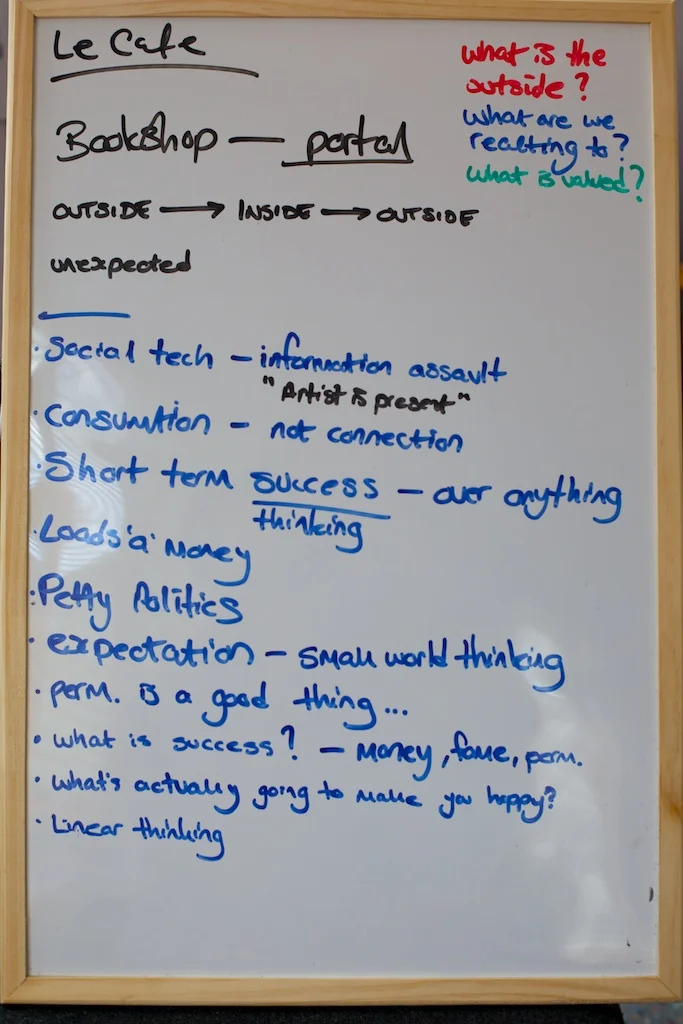 Le Cafe
Bookshop — portal
OUTSIDE → INSIDE → OUTSIDE
unexpected
what is the
outside?
what are we
reacting to?
what is valued?
· Social tech – information assault
"Artist is present"
· Consumtion – not connection
· Short term success – over anything
thinking
· Loads 'a' Money
· Petty Politics
· expectation – small world thinking
· perm. is a good thing...
· what is success? – Money, fame, perm.
· what's actually going to make you happy?
· Linear thinking